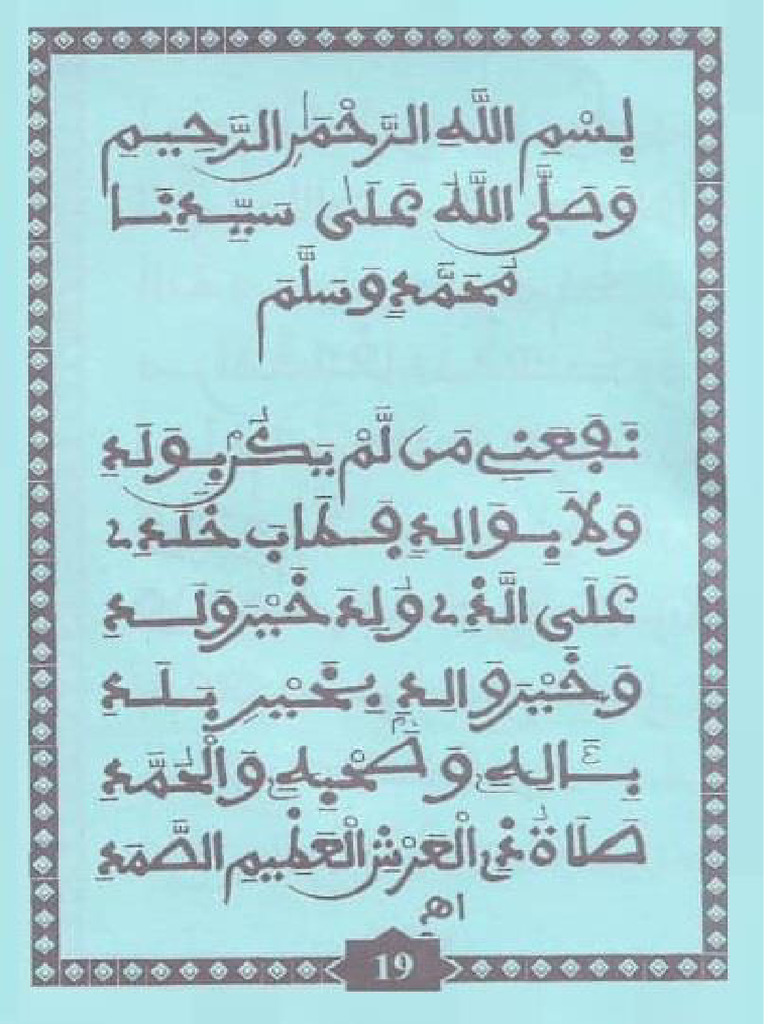 بِسْمِ اللَّهِ الرَّحْمَٰنِ الرَّحِيمِ
وَصَلَّى اللَّهُ عَلَىٰ سَيِّدِنَا
مُحَمَّدٍ وَسَلَّمَ
نَفَعَنِي مَن لَّمْ يَكُنْ بِوَلَدِ
وَلَا بِوَالِدٍ فَطَابَ خَلَدِي
عَلَى الَّذِي وُلِدَ خَيْرَ وَلَدِ
وَخَيْرَ وَالِدٍ بِخَيْرِ بَلَدِ
بِآلِهِ وَصَحْبِهِ وَالْحُمَّدِ
صَلَاةُ ذِي الْعَرْشِ الْعَظِيمِ الصَّمَدِ
اهـ
19